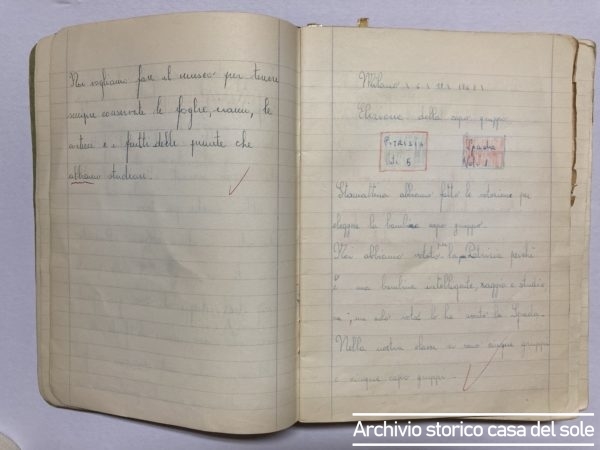 Noi vogliamo fare il museo per tenere
sempre conservate le foglie, i rami, le
e i frutti delle piante che
abbiamo studiare.
Milano
Elezione della capo gruppo
Patrizia
Voti 5
Spada
Voti 1
Stamattina abbiamo fatto le votazione per
eleggere la bambina capo gruppo.
Noi abbiamo votato la Patrizia perché
è una bambina intelligente, saggia e studio
sa, un solo voto lo ha avuto la Spada.
Nella nostra classe ci sono cinque gruppi
e cinque capo gruppi.
Archivio storico casa del sole